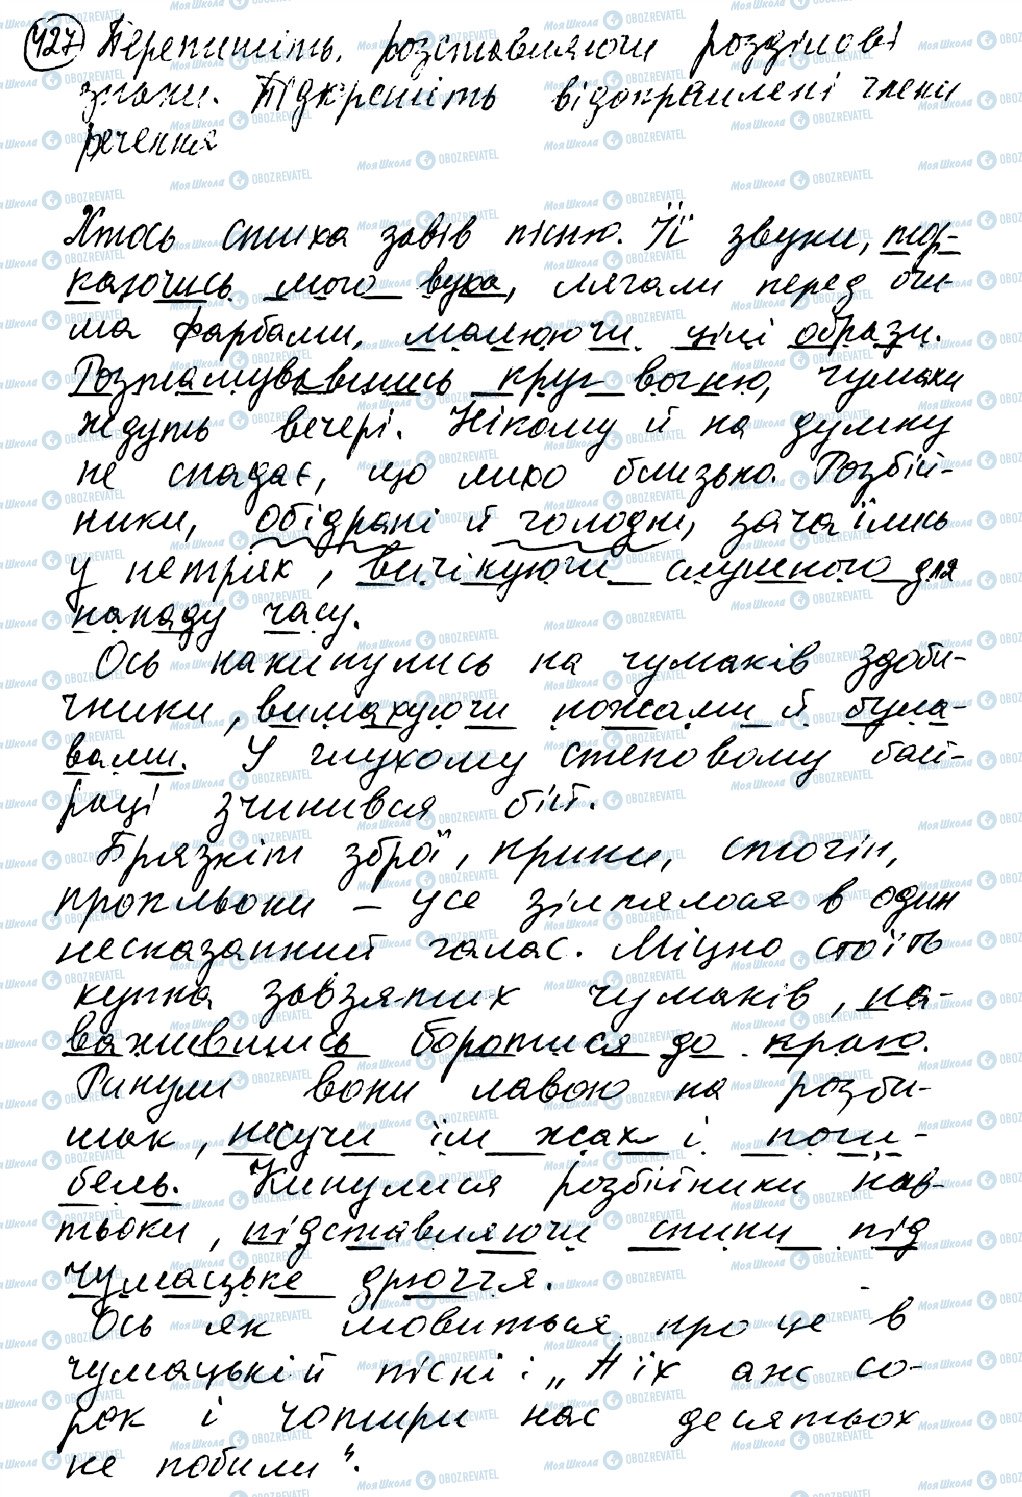 427 Перепишіть, розставляючи розділові
знаки. Підкресліть відокремлені члени
речення
Хтось стиха завів пісню. Її звуки, тор-
каючись мого вуха, лягали перед очи-
ма фарбами, малюючи цілі образи.
Розташувавшись круг вогню, чумаки
ждуть вечері. Нікому й на думку
не спадає, що лихо близько. Розбій-
ники, обідрані й голодні, зачаїлись
у нетрях, вичікуючи слушного для
нападу часу.
Ось накинулись на чумаків здоби-
чники, вимахуючи ножами й була-
вами. У глухому степовому бай-
раці зчинився бій.
Брязкіт зброї, крики, стогін,
прокльони – усе зілляялося в один
несказанний галас. Міцно стоїть
купка завзятих чумаків, на-
важившись боротися до краю.
Ринули вони лавою на розби-
шак, несучи їм жах і поги-
бель. Кинулися розбійники нав-
тьоки, підставляючи спини під
чумацьке дрюччя.
Ось як мовиться про це в
чумацькій пісні: „А їх аж со-
рок і чотири нас десятьох
не побили".